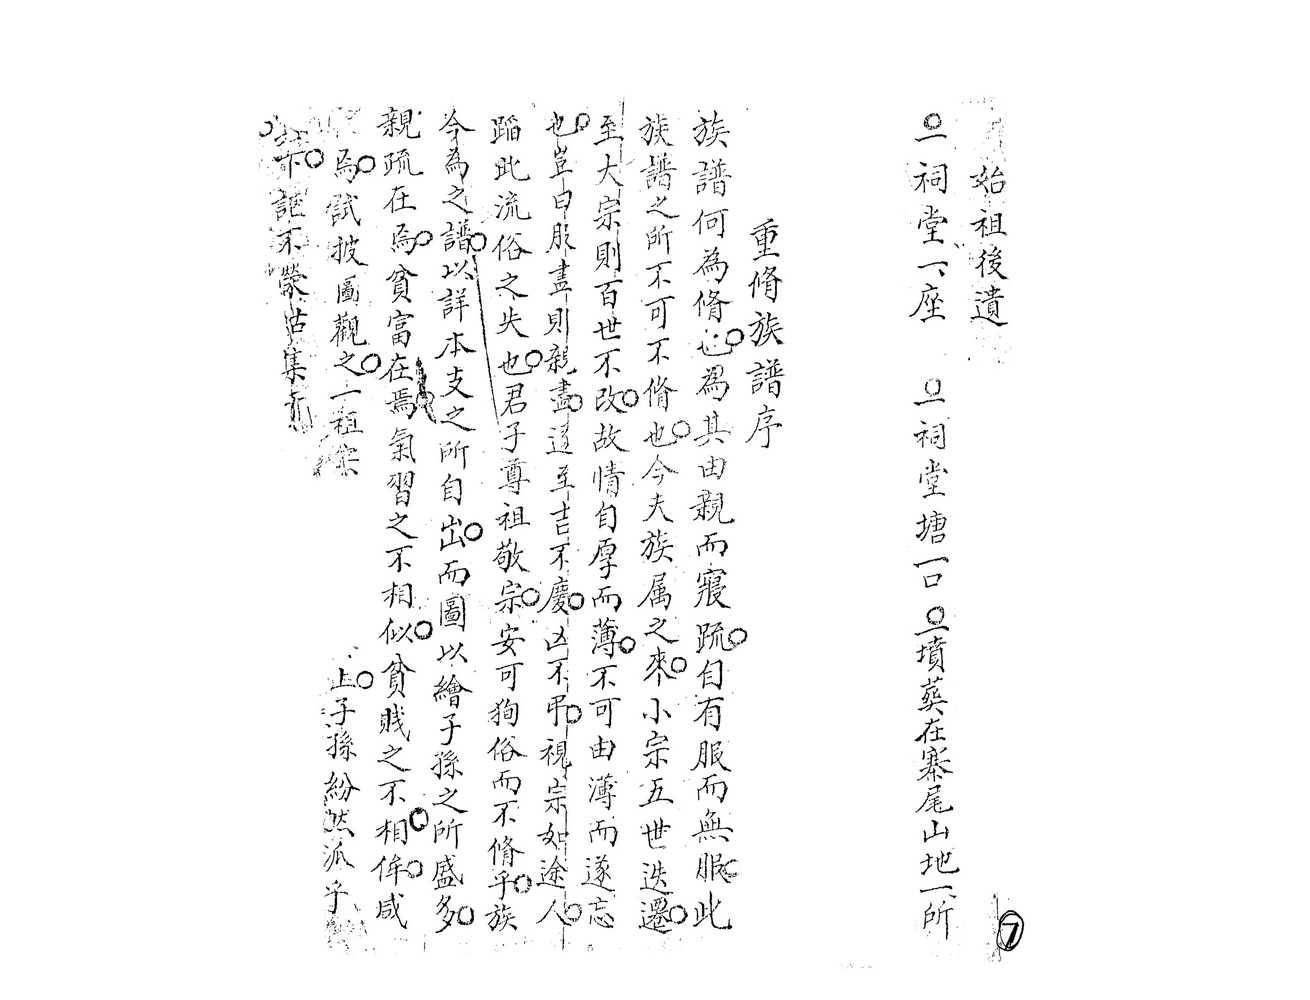 始祖後遺
一祠堂一座 一祠堂塘一口 一墳葬在寨尾山地一所
重脩族譜序
族譜何為脩也為其由親而寢疏自有服而無服此
族譜之所不可不脩也今夫族属之來小宗五世迭遷
至大宗則百世不改故情自厚而薄不可由薄而遂忘
也豈曰服盡則親盡遂至吉不慶凶不弔視宗如途人
蹈此流俗之失也君子尊祖敬宗安可狥俗而不脩乎族
今為之譜以詳本支之所自出而圖以繪子孫之所盛多
親疏在焉貧富在焉氣習之不相似貧賤之不相侔咸
焉試披圖觀之一祖宗 上子孫紛然派乎
不 集
7